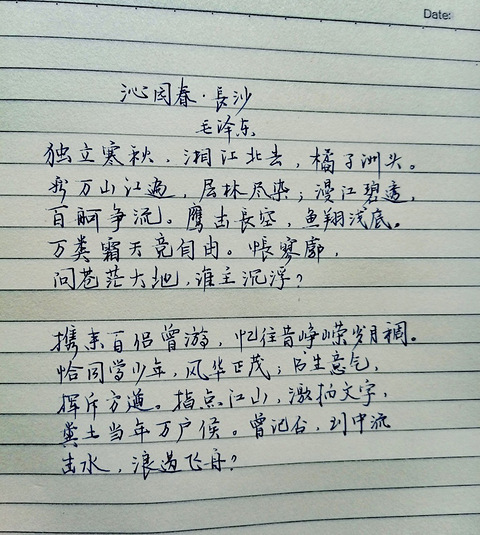 Date:
沁园春·長沙
毛泽东
独立寒秋，湘江北去，橘子洲头。
看万山江遍，层林尽染；漫江碧透，
百舸争流。鹰击長空，鱼翔浅底。
万类霜天竞自由。怅寥廓，
问苍茫大地，谁主沉浮？
携来百侣曾游，忆往昔峥嵘岁月稠。
恰同学少年，风华正茂；书生意气，
挥斥方遒。指点江山，激扬文字，
粪土当年万户侯。曾记否，到中流
击水，浪遏飞舟？